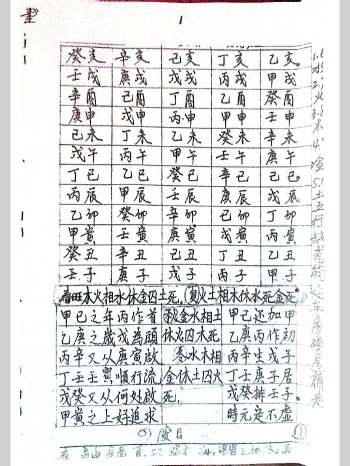 1
癸亥 辛亥 己亥 丁亥 乙亥
壬戌 庚戌 戊戌 丙戌 甲戌
辛酉 己酉 丁酉 乙酉 癸酉
庚申 戊申 丙申 甲申 壬申
己未 丁未 乙未 癸未 辛未
戊午 丙午 甲午 壬午 庚午
丁巳 乙巳 癸巳 辛巳 己巳
丙辰 甲辰 壬辰 庚辰 戊辰
乙卯 癸卯 辛卯 己卯 丁卯
甲寅 壬寅 庚寅 戊寅 丙寅
癸丑 辛丑 己丑 丁丑 乙丑
壬子 庚子 戊子 丙子 甲子
春旺木火相水休金囚土死,夏火土相木休水死金死
甲己之年丙作首 秋金水相土 甲己还加甲
乙庚之歲戊為頭 休火囚木死 乙庚丙作初
丙辛又从庚寅啟 冬水木相 丙辛生戊子
丁壬壬寅順行流 金休土囚火 丁壬庚子居
戊癸又从何处啟 死, 戊癸排壬子
甲寅之上好追求 時元定不虛
1.水2.火3.木4.金5.土五行